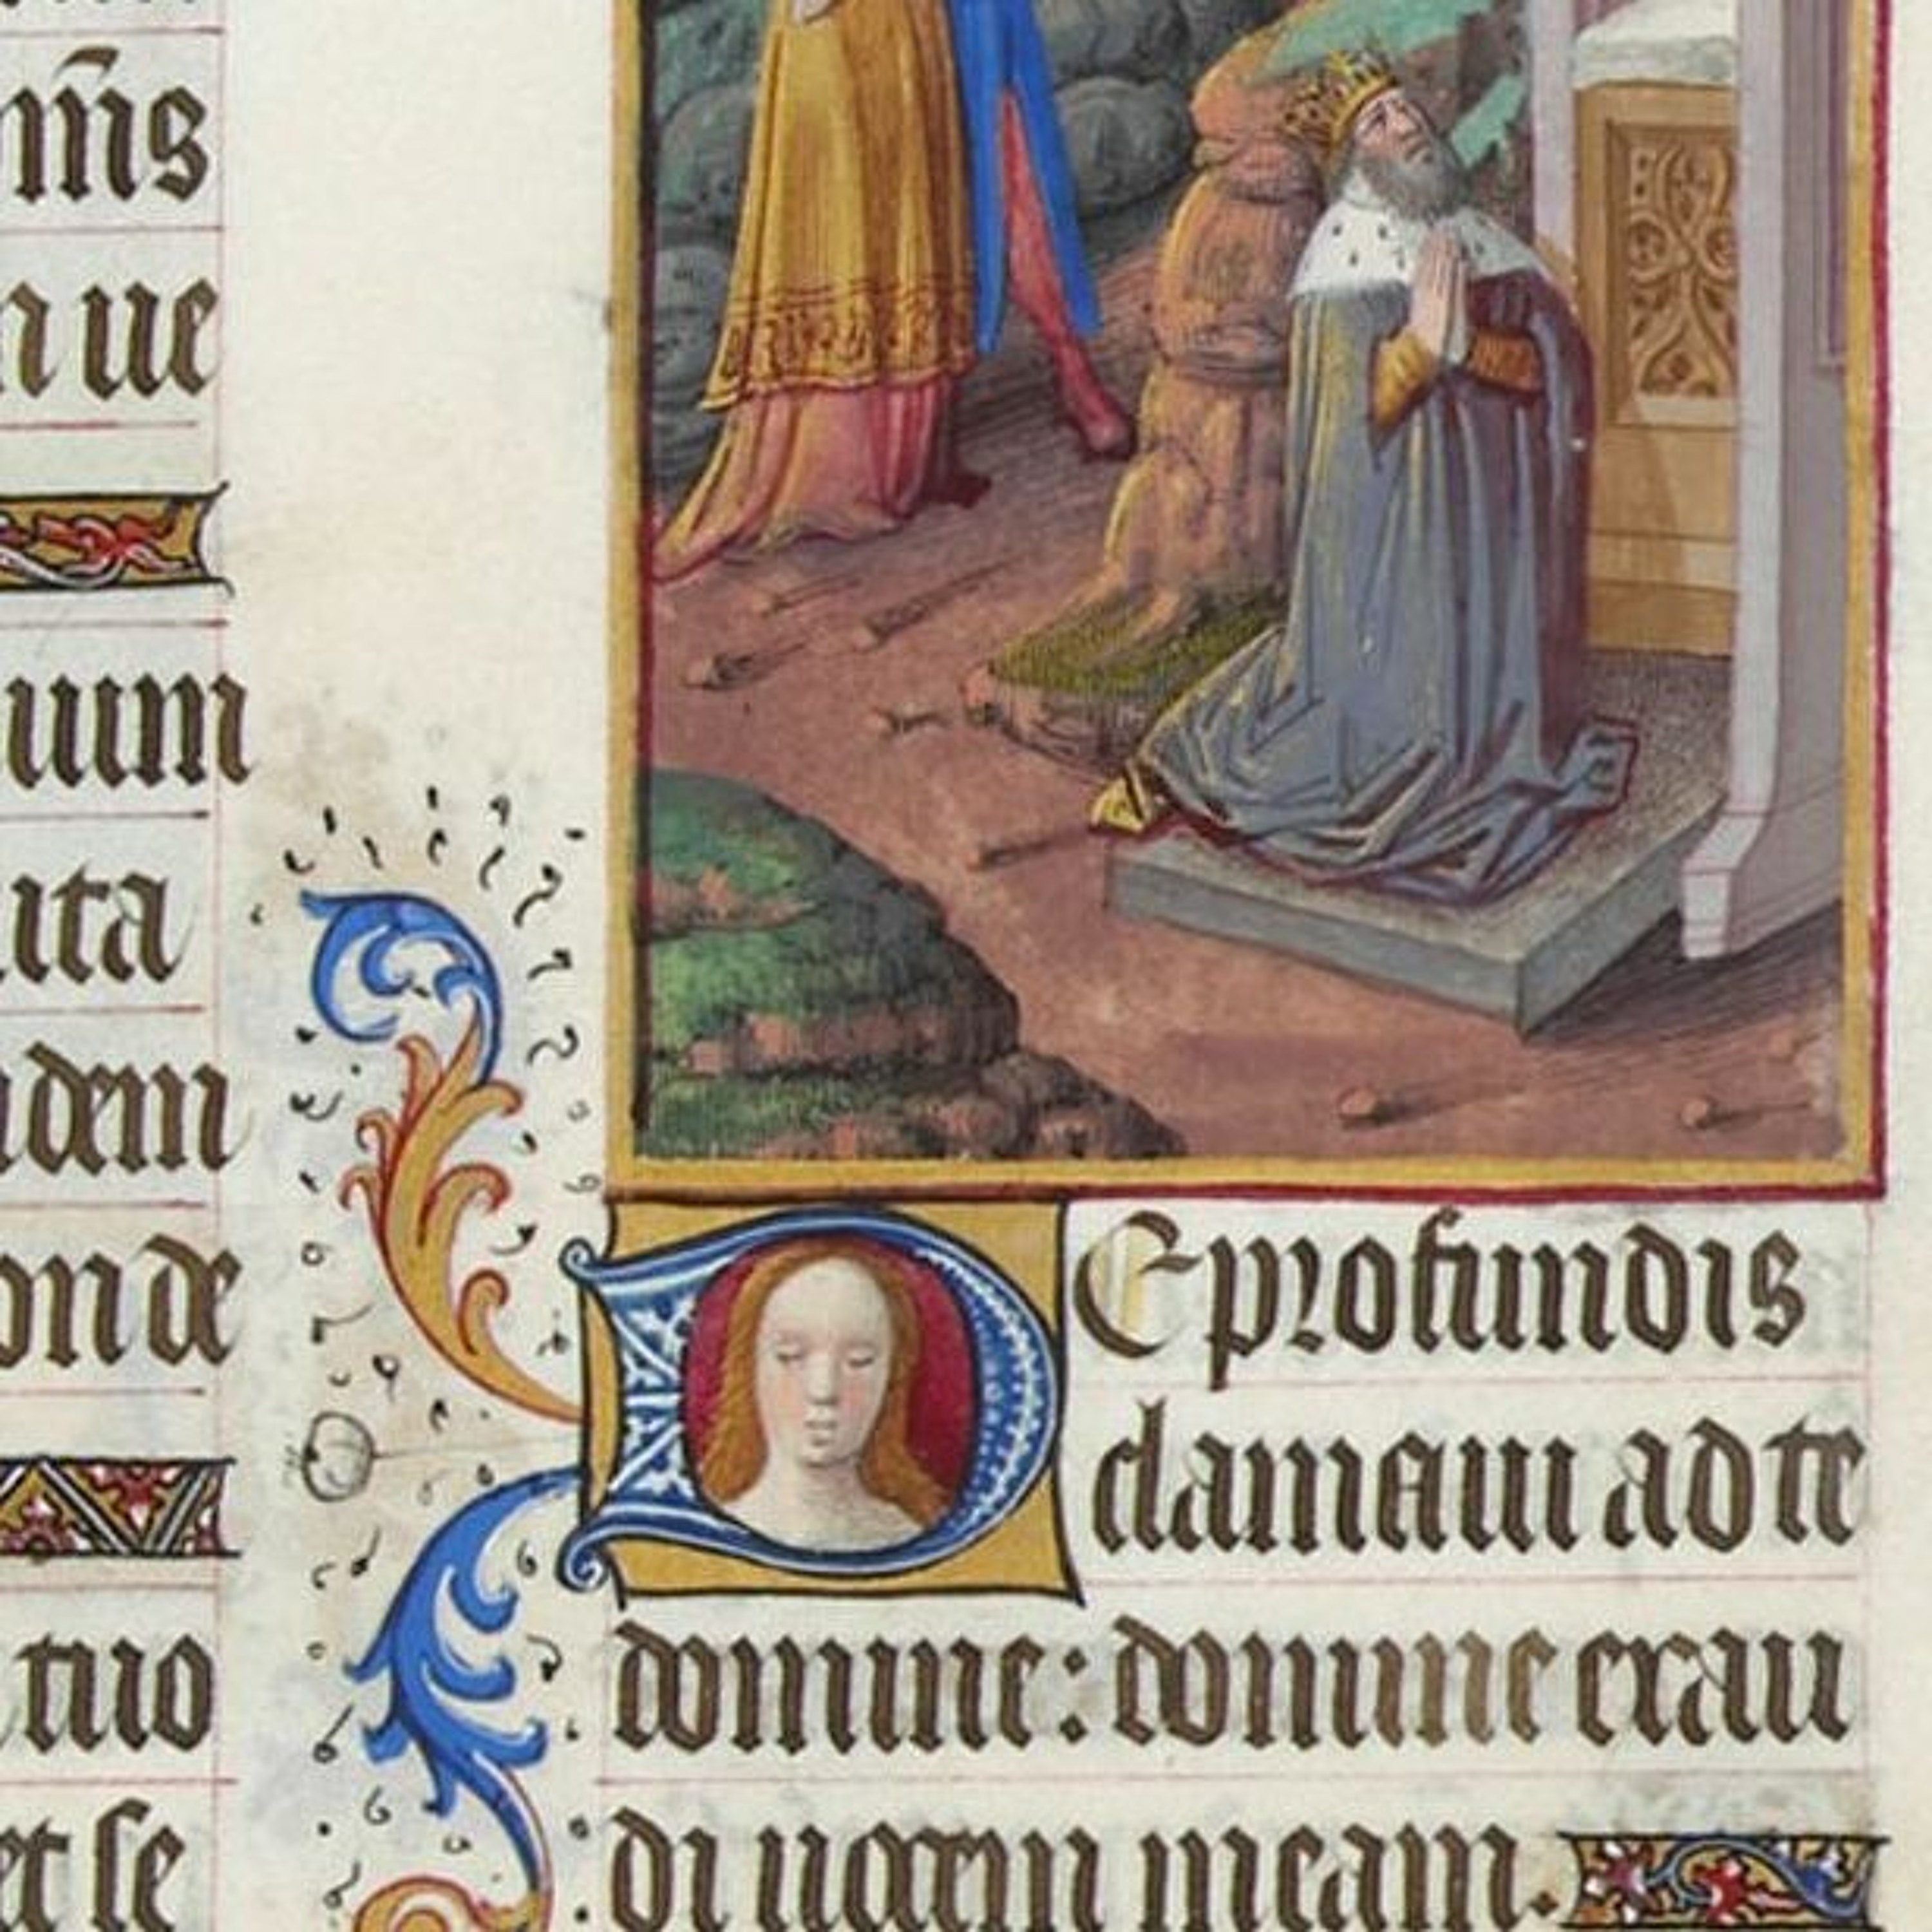 m̄s
n ue
uum
ita
ndem
onde
tuo
et se
De profundis
clamaui ad te
domine: domine exau
di uocem meam.